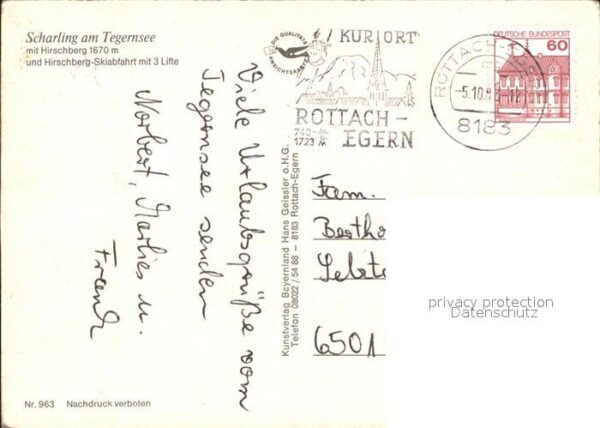 Scharling am Tegernsee
mit Hirschberg 1670 m
und Hirschberg-Skiabfahrt mit 3 Lifte
DIE QUALITÄTS
ANSICHTSKARTE
KURORT
ROTTACH-
EGERN
740-
1723 m
ROTTACH-EGERN
-5.10.
8183
DEUTSCHE BUNDESPOST
60
Viele Urlaubsgrüße vom
Tegernsee senden
Norbert, Marlies u.
Frank
Kunstverlag Bayernland Hans Geissler o.H.G.
Telefon 08022 / 54 88 – 8183 Rottach-Egern
Fam.
Bertho
6501
privacy protection
Datenschutz
Nr. 963 Nachdruck verboten